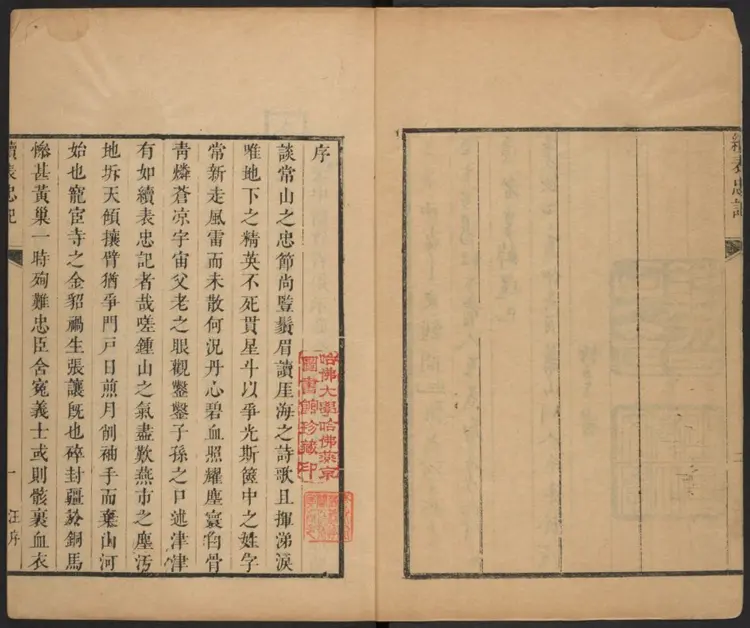 續表忠記
二
序
談常山之忠節尚豎鬚眉讀厓海之詩歌且揮涕淚
唯地下之精英不死貫星斗以爭光斯篋中之姓字
常新走風雷而未散何況丹心碧血照耀塵寰白骨
青燐蒼凉宇宙父老之眼觀鑿鑿子孫之口述津津
有如續表忠記者哉嗟鍾山之氣盡歎燕市之塵汚
地坼天傾攘臂猶爭門戶日煎月削袖手而棄山河
始也寵宦寺之金貂禍生張讓旣也碎封疆於銅馬
慘甚黃巢一時殉難忠臣含寃義士或則骸裹血衣
續表忠記
一
汪序
哈佛大學哈佛燕京
圖書館珍藏印